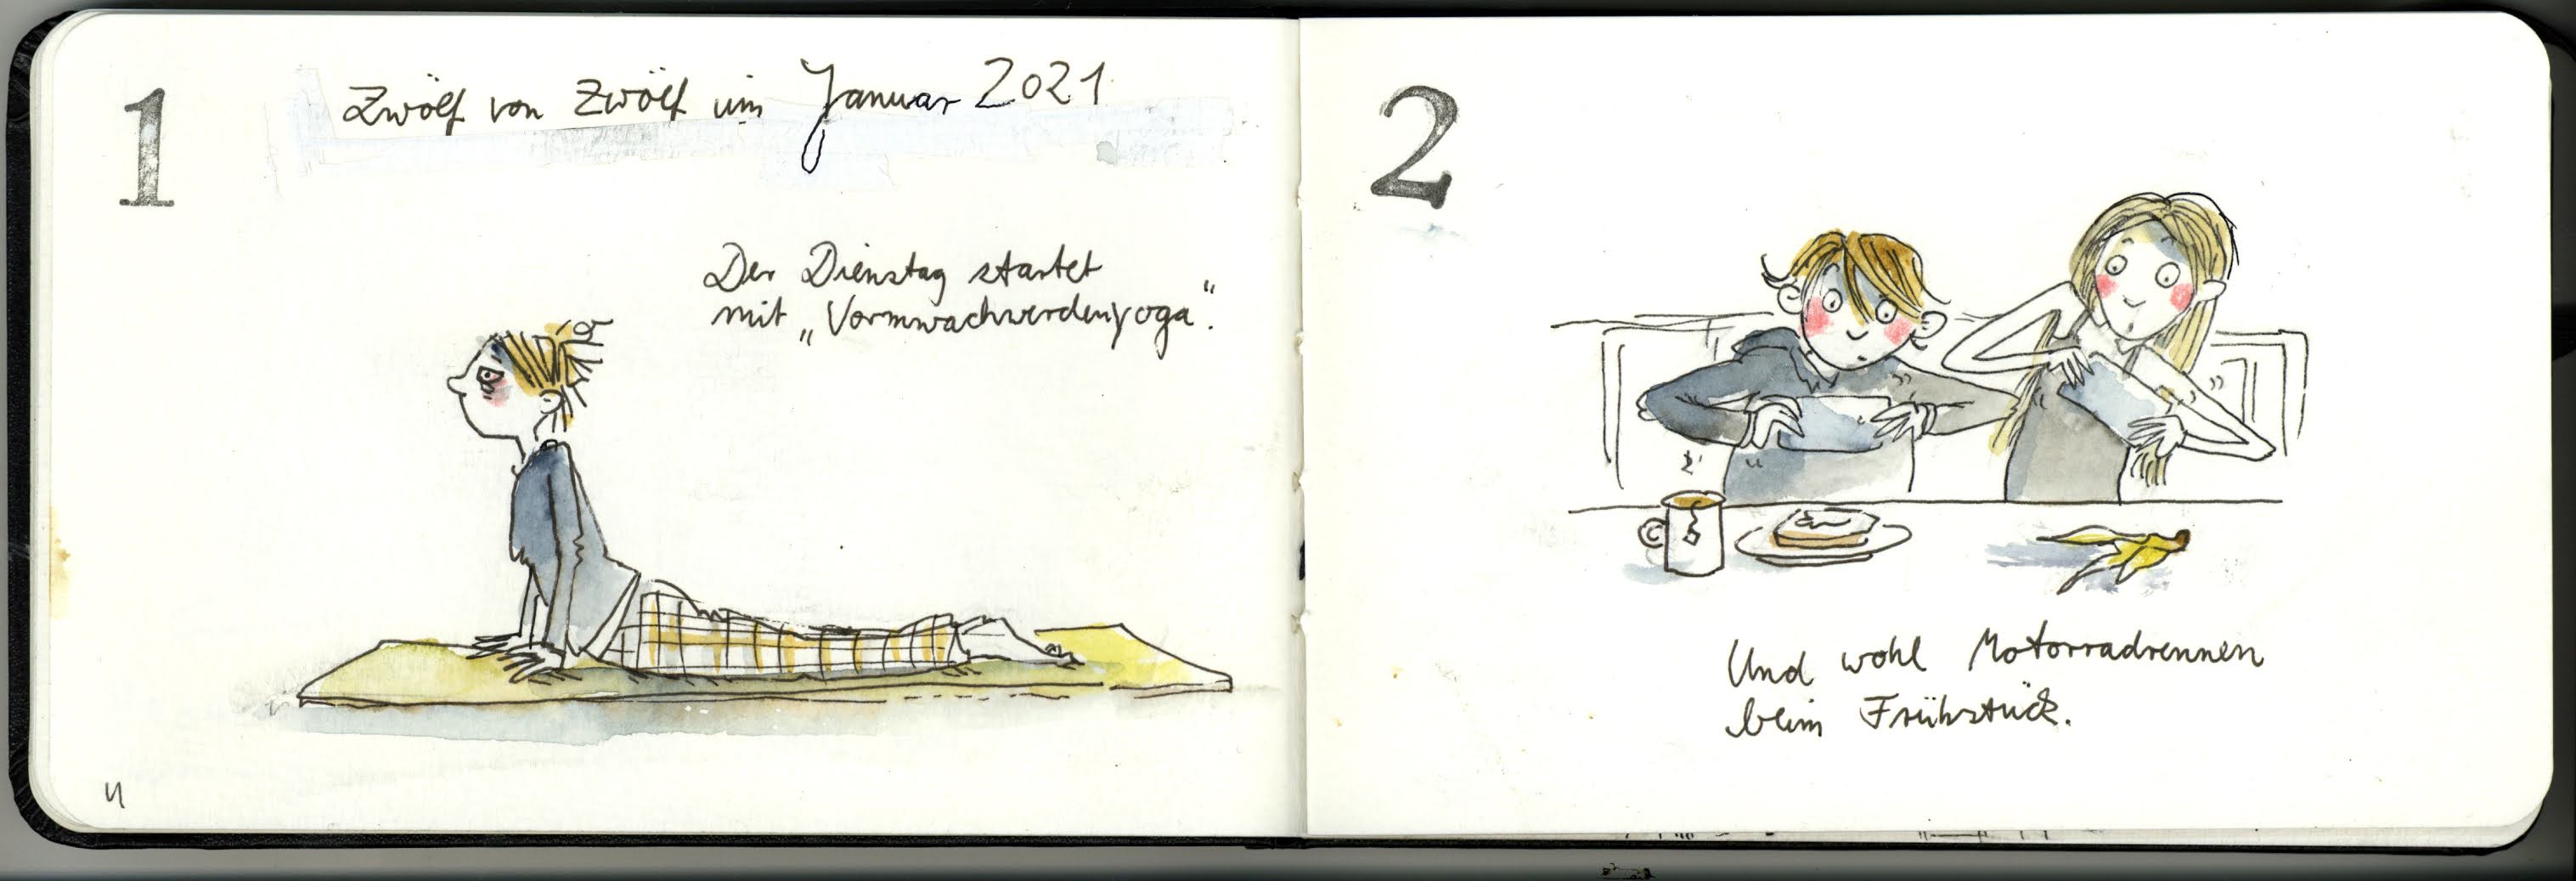 1
Zwölf von Zwölf im Januar 2021
Der Dienstag startet
mit „Vormwachwerdenyoga“.
2
Und wohl Motorradrennen
beim Frühstück.